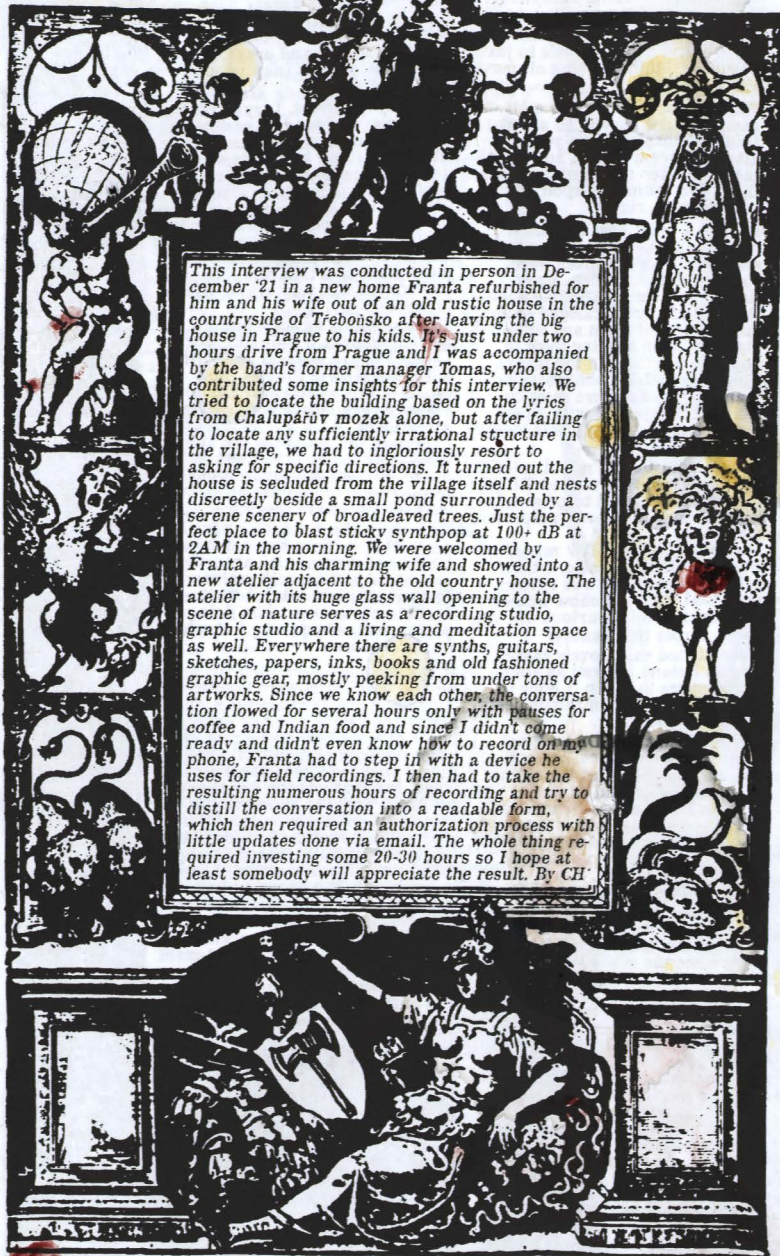 This interview was conducted in person in De-
cember '21 in a new home Franta refurbished for
him and his wife out of an old rustic house in the
countryside of Třeboňsko after leaving the big
house in Prague to his kids. It's just under two
hours drive from Prague and I was accompanied
by the band's former manager Tomas, who also
contributed some insights for this interview. We
tried to locate the building based on the lyrics
from Chalupářův mozek alone, but after failing
to locate any sufficiently irrational structure in
the village, we had to ingloriously resort to
asking for specific directions. It turned out the
house is secluded from the village itself and nests
discreetly beside a small pond surrounded by a
serene scenery of broadleaved trees. Just the per-
fect place to blast sticky synthpop at 100+ dB at
2AM in the morning. We were welcomed by
Franta and his charming wife and showed into a
new atelier adjacent to the old country house. The
atelier with its huge glass wall opening to the
scene of nature serves as a recording studio,
graphic studio and a living and meditation space
as well. Everywhere there are synths, guitars,
sketches, papers, inks, books and old fashioned
graphic gear, mostly peeking from under tons of
artworks. Since we know each other, the conversa-
tion flowed for several hours only with pauses for
coffee and Indian food and since I didn't come
ready and didn't even know how to record on my
phone, Franta had to step in with a device he
uses for field recordings. I then had to take the
resulting numerous hours of recording and try to
distill the conversation into a readable form,
which then required an authorization process with
little updates done via email. The whole thing re-
quired investing some 20-30 hours so I hope at
least somebody will appreciate the result. By CH